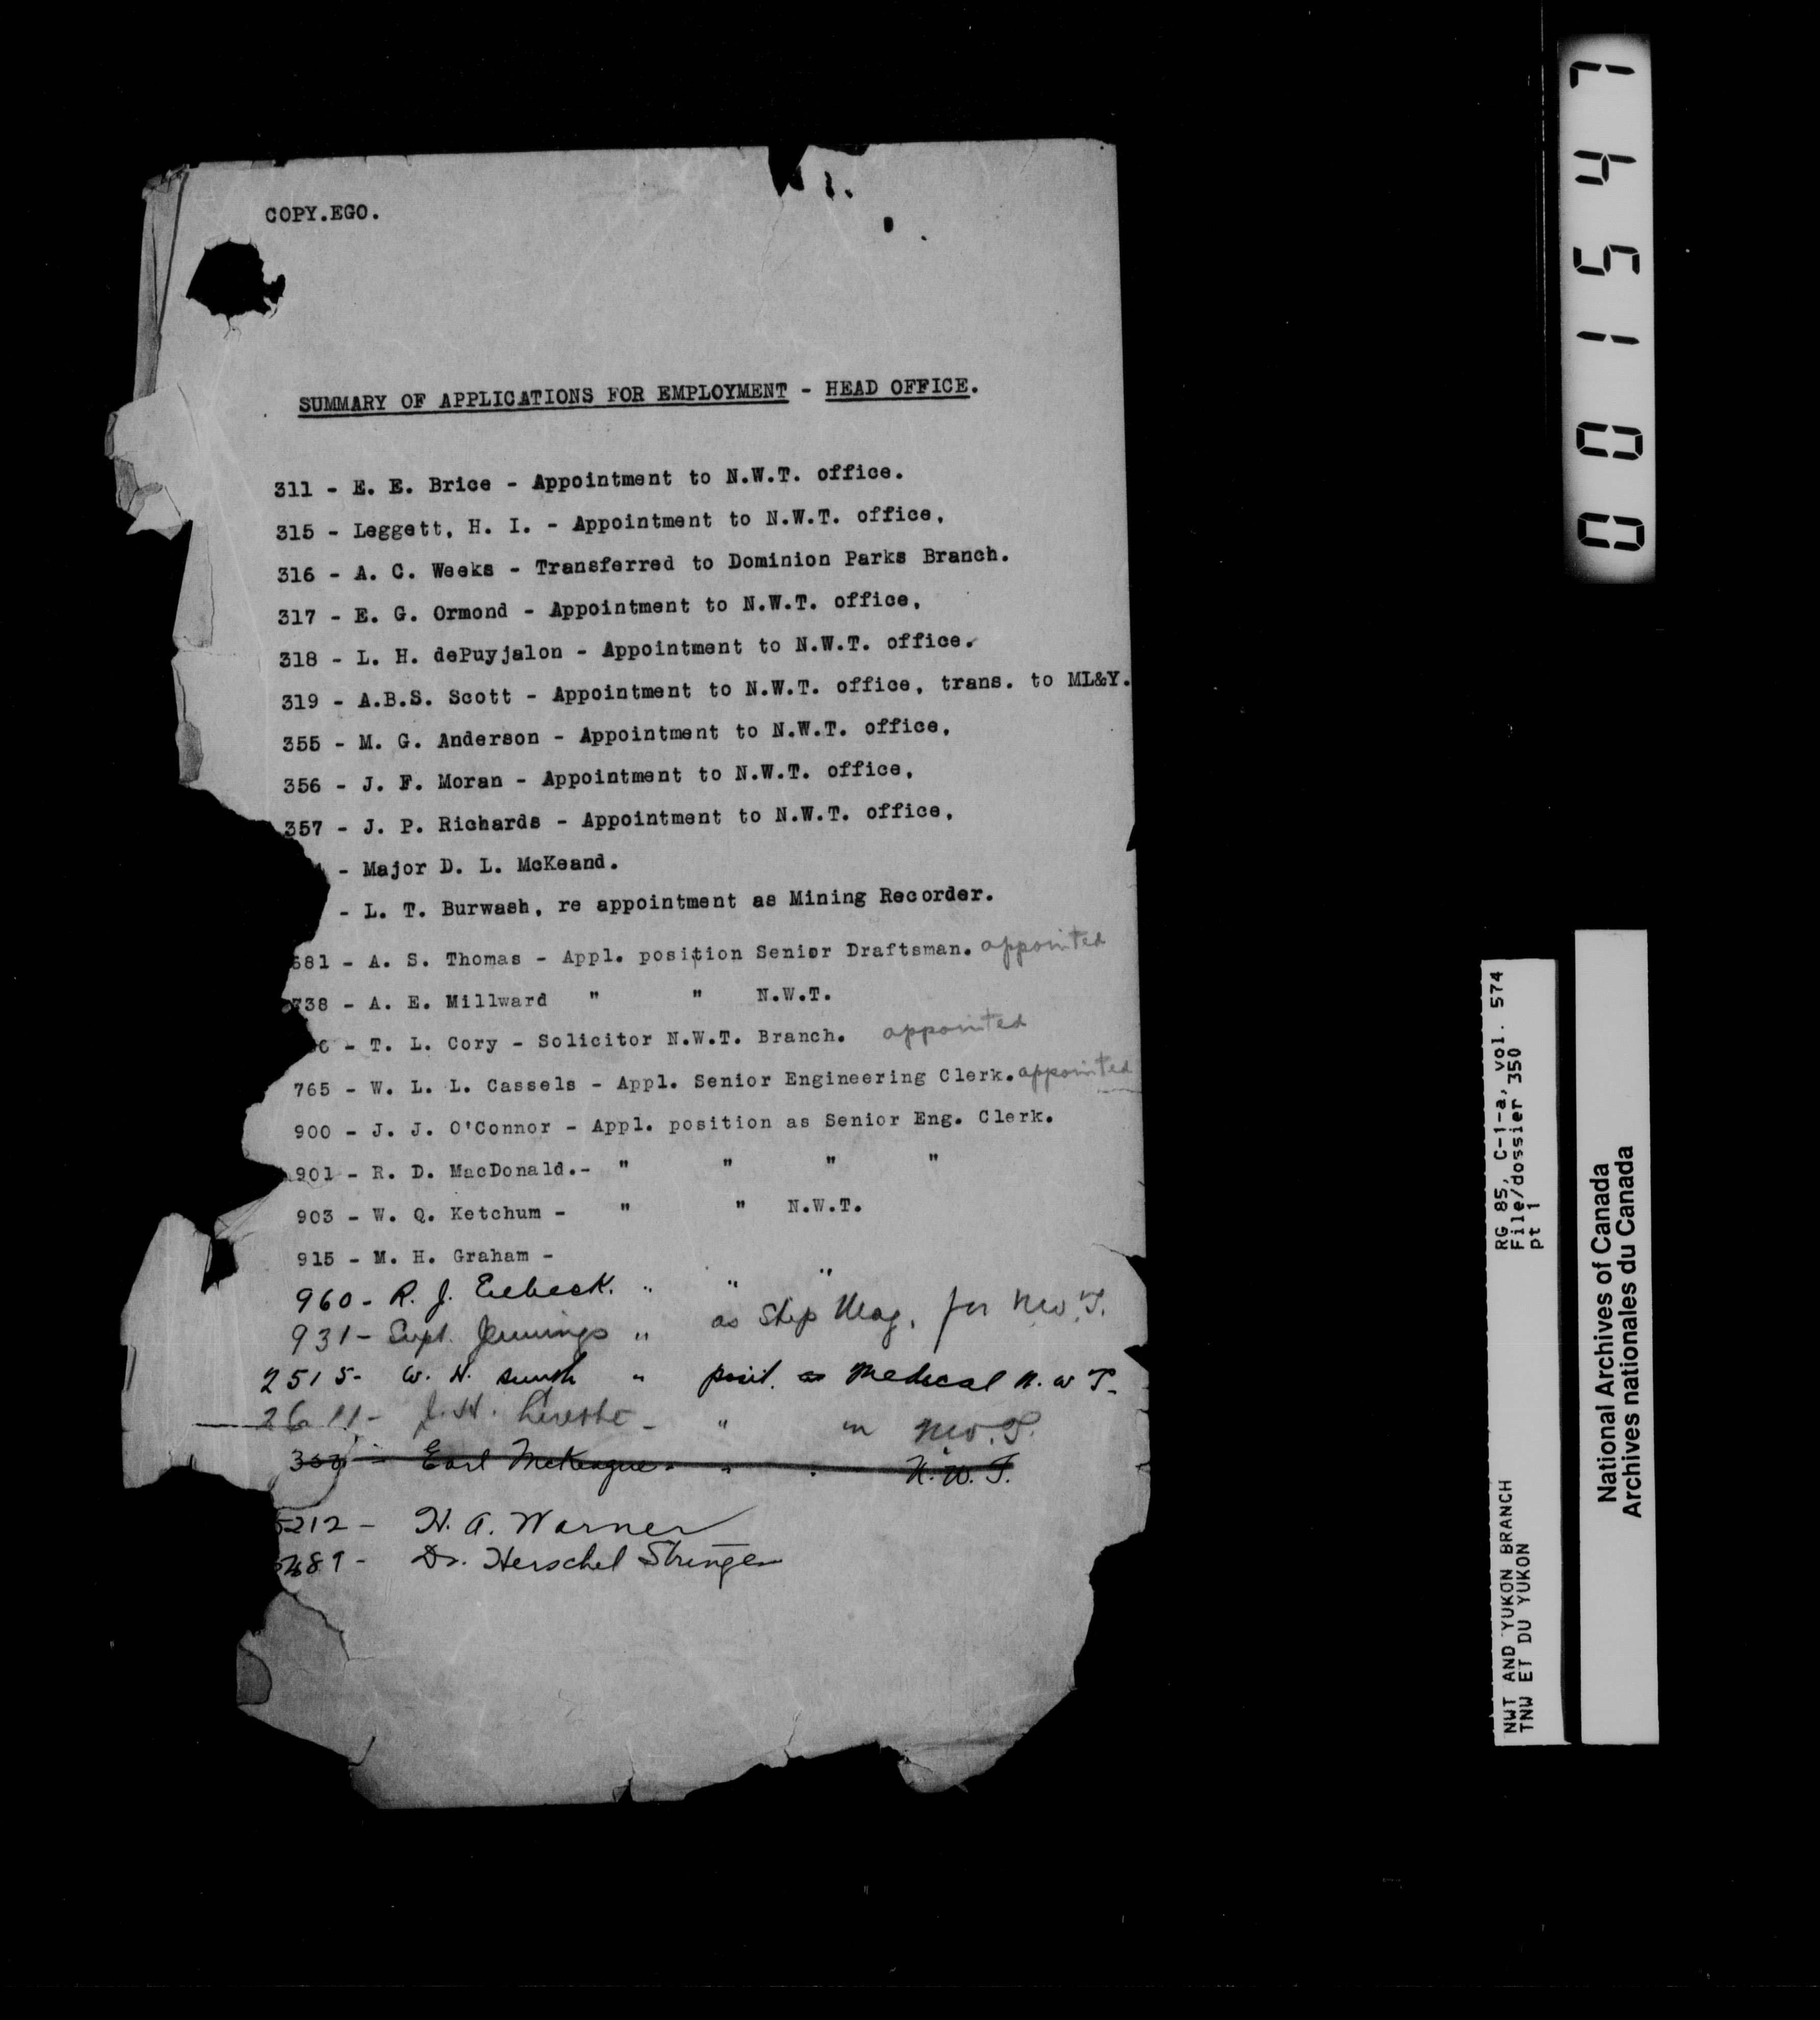 COPY.EGO.
SUMMARY OF APPLICATIONS FOR EMPLOYMENT - HEAD OFFICE.
311 - E. E. Brice - Appointment to N.W.T. office.
315 - Leggett, H. I. - Appointment to N.W.T. office,
316 - A. C. Weeks - Transferred to Dominion Parks Branch.
317 - E. G. Ormond - Appointment to N.W.T. office,
318 - L. H. dePuyjalon - Appointment to N.W.T. office.
319 - A.B.S. Scott - Appointment to N.W.T. office, trans. to ML&Y.
355 - M. G. Anderson - Appointment to N.W.T. office,
356 - J. F. Moran - Appointment to N.W.T. office,
357 - J. P. Richards - Appointment to N.W.T. office,
- Major D. L. McKeand.
- L. T. Burwash, re appointment as Mining Recorder.
681 - A. S. Thomas - Appl. position Senior Draftsman. appointed
738 - A. E. Millward " " N.W.T.
- T. L. Cory - Solicitor N.W.T. Branch. appointed
765 - W. L. L. Cassels - Appl. Senior Engineering Clerk. appointed
900 - J. J. O'Connor - Appl. position as Senior Eng. Clerk.
901 - R. D. MacDonald.- " " " "
903 - W. Q. Ketchum - " " N.W.T.
915 - M. H. Graham -
960 - R. J. " " "
931 - Supt. Jennings " as Ship for N.W.T.
2515 - W. H. Smith " posit. as Medical N.W.T.
2611 - J. H. - " in N.W.T.
Earl McKeague - " " N.W.T.
5212 - H. A. Warner
489 - Dr. Herschel Stringer
001547
RG 85, C-1-a, vol. 574
File/dossier 350
pt 1
NWT AND YUKON BRANCH
TNW ET DU YUKON
National Archives of Canada
Archives nationales du Canada